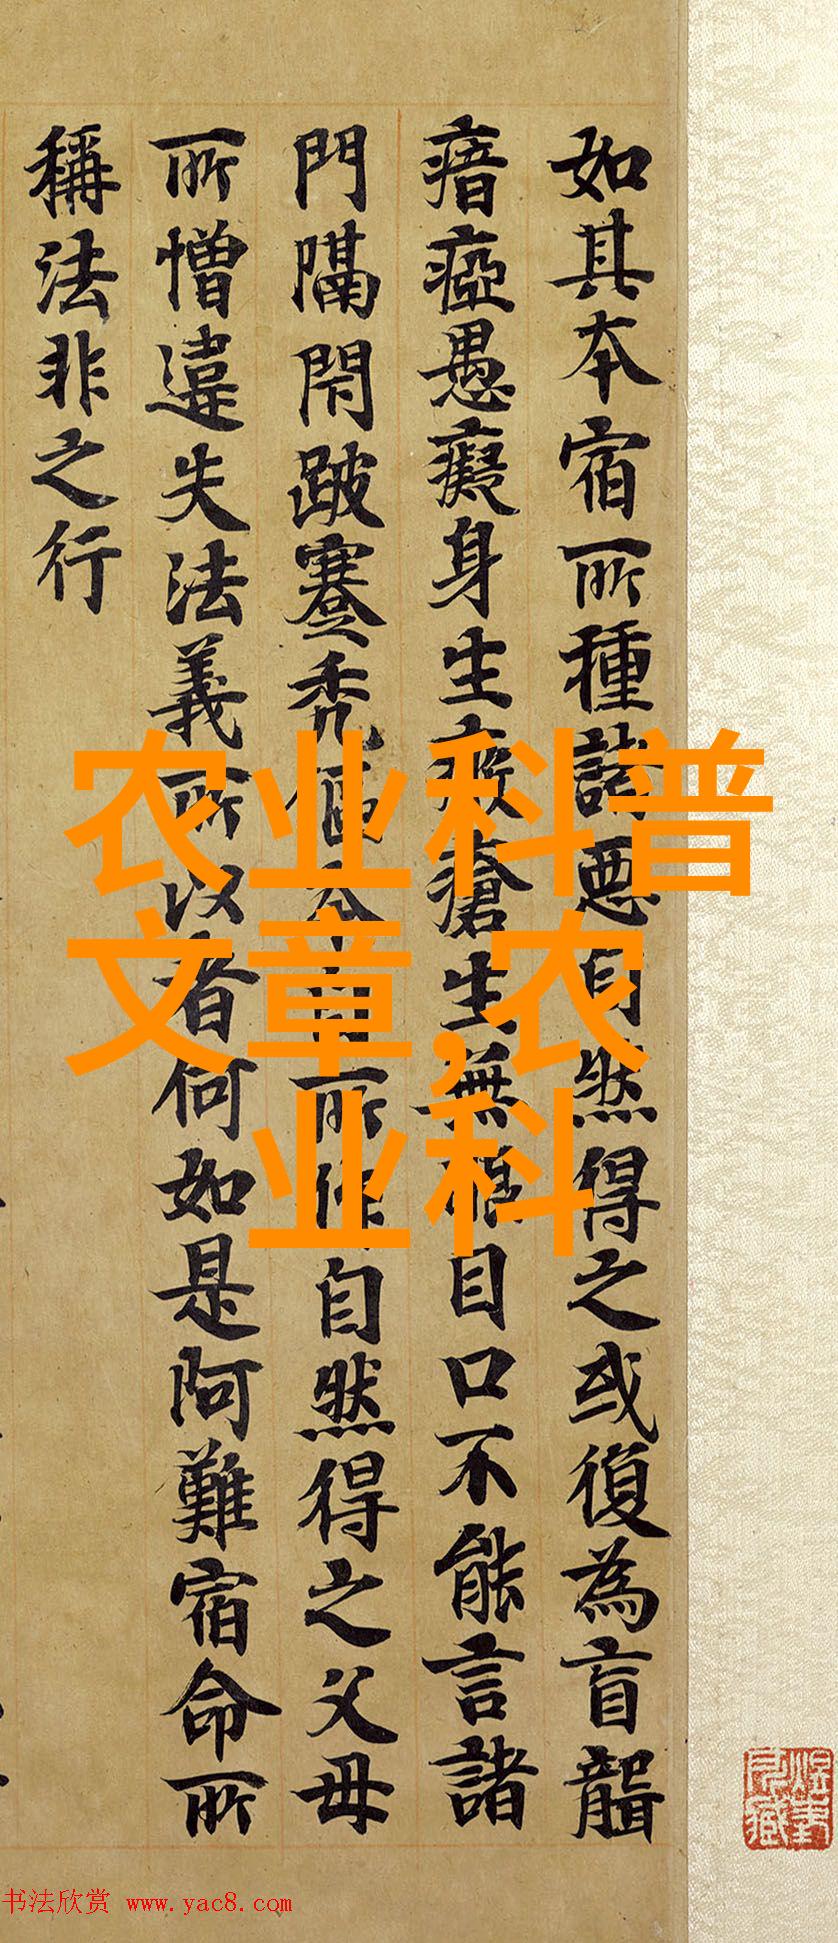 如其本宿所種諸惡自然得之或復為盲聾
瘖瘂愚癡身生瘡生無目口不能言諸
門隔閉跛蹇禿傴本所作自然得之父母
所憎違失法義所以者何如是阿難宿命所
稱法非之行
农业科普
文章,农
业科
书法欣赏 www.yac8.com